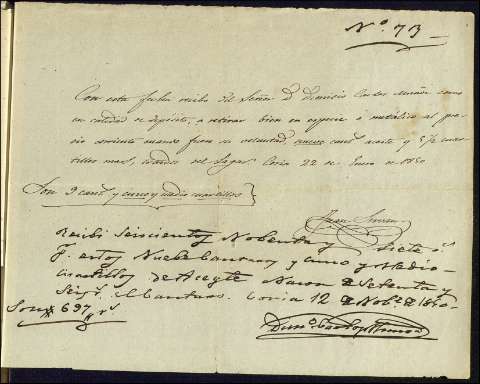 Nº. 73
Con esta fecha recibo del Señor D. Dionisio Carlos Muñoz como
en calidad de depósito, a retirar bien en especie ó metálico al pre
cio corriente cuando fuere su voluntad, nueve cant.s aceite y 5½ cuar
tillos mas, del Lagar. Coria 22 de Enero de 1850
Son 9 cant.s y cinco y medio cuartillos
Juan
Recibi Seiscientos Nobenta y siete r.s
estos Nuebe Cantaros y cinco y Medio
Cuartillos de Aceyte a Setenta y
Cantaro. Coria 12 de Nob.e de 1850
Son 697 r.s
Dion.o Carlos Munoz